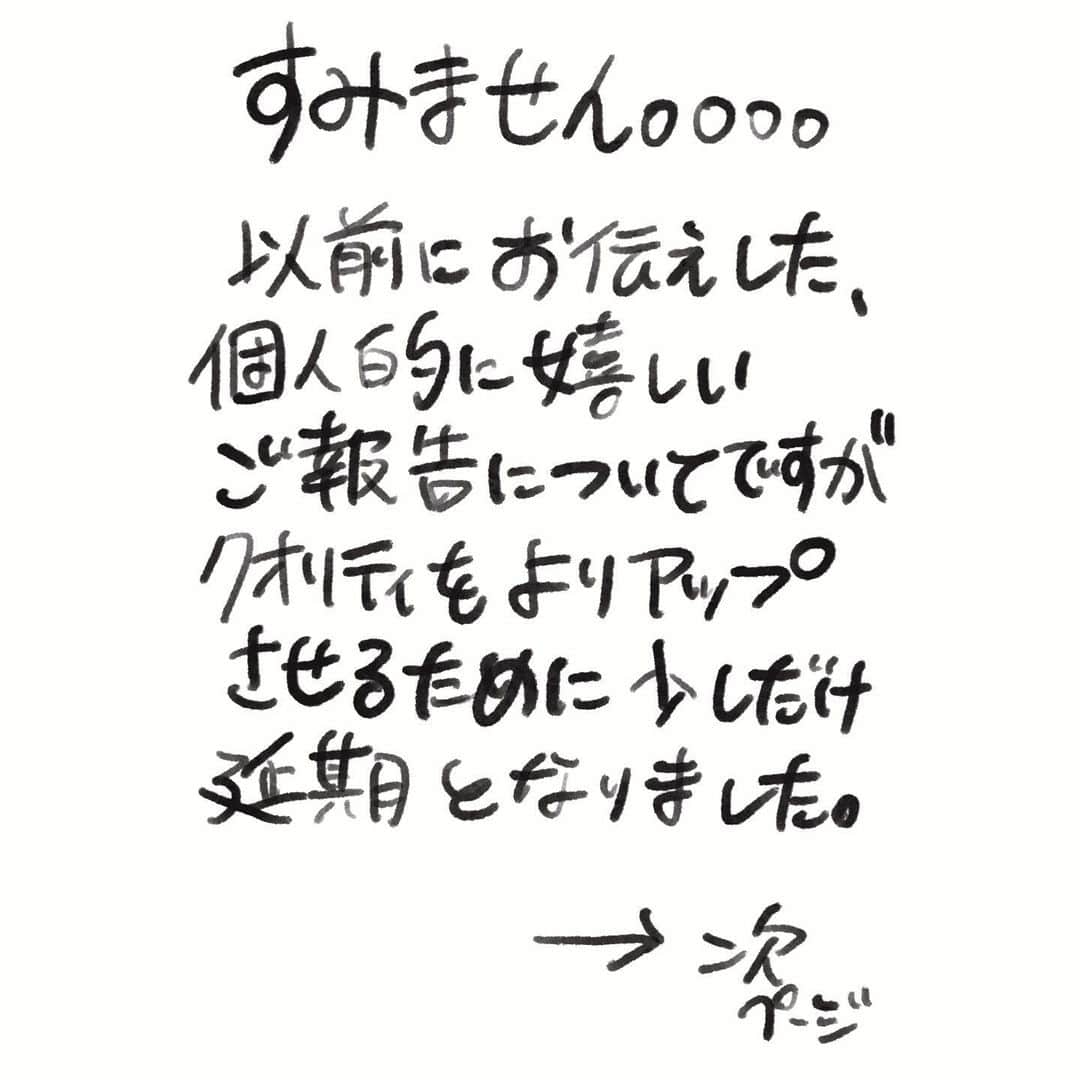 すみません。。。。
以前にお伝えした、
個人的に嬉しい
ご報告についてですが
クオリティをよりアップ
させるために少しだけ
延期となりました。
→次
ページ